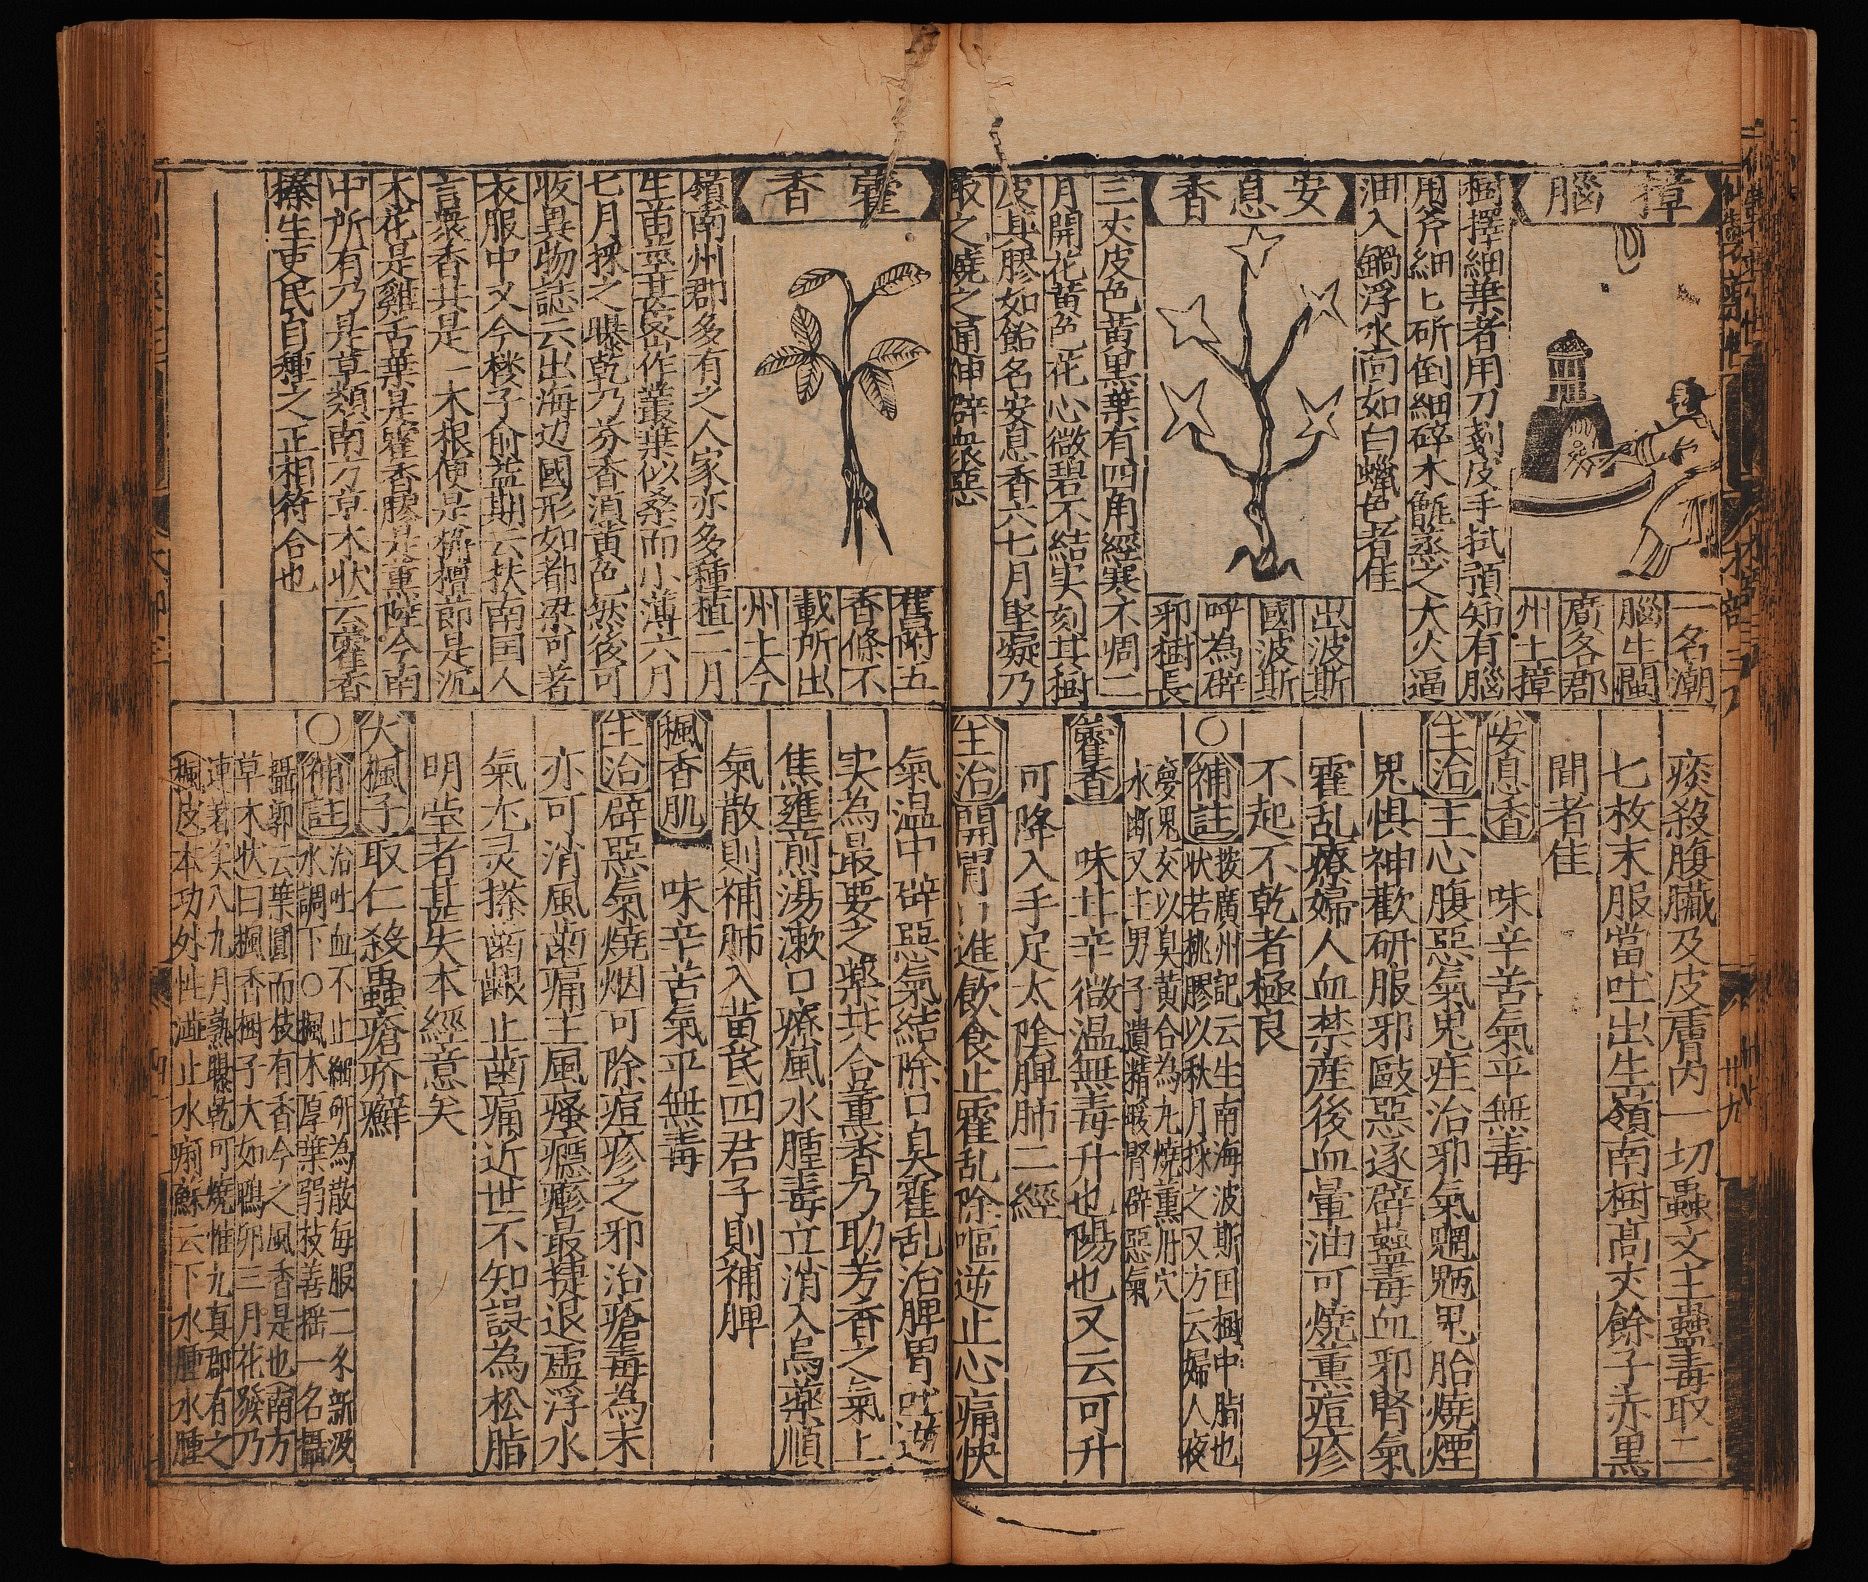 樟腦
一名潮
腦生閩
廣各郡
州土樟
樹擇細葉者用刀刻皮手拭頂知有腦
用斧細匕斫倒細碎木甑烝之大火逼
油入鍋浮水面如白蠟色者佳
安息香
出波斯
國波斯
呼為辟
邪樹長
三丈皮色黃黑葉有四角經寒不凋二
月開花黃色花心微碧不結实刻其樹
皮其膠如飴名安息香六七月堅凝乃
取之燒之通神辟衆惡
痰殺腹臟及皮膚內一切蟲文主蠱毒取二
七枚末服當吐出生嶺南樹高丈餘子赤黑
間者佳
安息香 味辛苦氣平無毒
主治主心腹惡氣鬼疰治邪氣魍魎鬼胎燒煙
鬼惧神歡研服邪毆惡逐辟蠱毒血邪腎氣
霍乱療婦人血禁產後血暈油可燒薰痘疹
不起不乾者極良
○補註按廣州記云生南海波斯囯樹中脂也
狀若桃膠以秋月採之又方云婦人夜
夢鬼交以臭黃合為丸燒薰丹穴
水断又主男子遺精暖腎辟惡氣
藿香 味甘辛微温無毒升也陽也又云可升
可降入手足太陰脾肺二經
主治開胃口進飲食止霍乱除嘔逆止心痛快
藿香
舊附五
香條不
載所出
州土今
嶺南州郡多有之人家亦多種植二月
生苗莖甚密作叢葉似桑而小薄六月
七月採之曝乾乃芬香湏黃色然後可
收異物誌云出海边國形如都梁可著
衣服中又今梹子俞益期云扶南囯人
言衆香共是一木根便是栴檀節是沉
木花是雞舌葉是霍香膠是薰陸今南
中所有乃是草類南方草木狀云藿香
榛生吏民自種之正相符合也
氣温中辟惡氣結除口臭霍乱治脾胃吐逆
实為最要之藥共合薰香乃助芳香之氣上
焦壅煎湯漱口療風水腫毒立消入烏藥順
氣散則補肺入黃芪四君子則補脾
楓香肌 味辛苦氣平無毒
主治辟惡氣燒烟可除痘疹之邪治瘡毒為末
亦可消風齒痛主風瘙癮瘮最捷退虛浮水
氣尔灵搽齒齦止齒痛近世不知誤為松脂
明瑩者甚失本經意矣
大楓子取仁殺蟲瘡疥癬
○補註治吐血不止細研為散每服二不新汲
水調下○楓木厚葉弱枝善搖一名欇
欇郭云葉圓而枝有香今之風香是也南方
草木状曰楓香樹子大如鴨卵三月花發乃
連著实八九月熟曝乾可燒惟九真郡有之
楓皮本功外性澁止水痢蘇云下水腫水腫